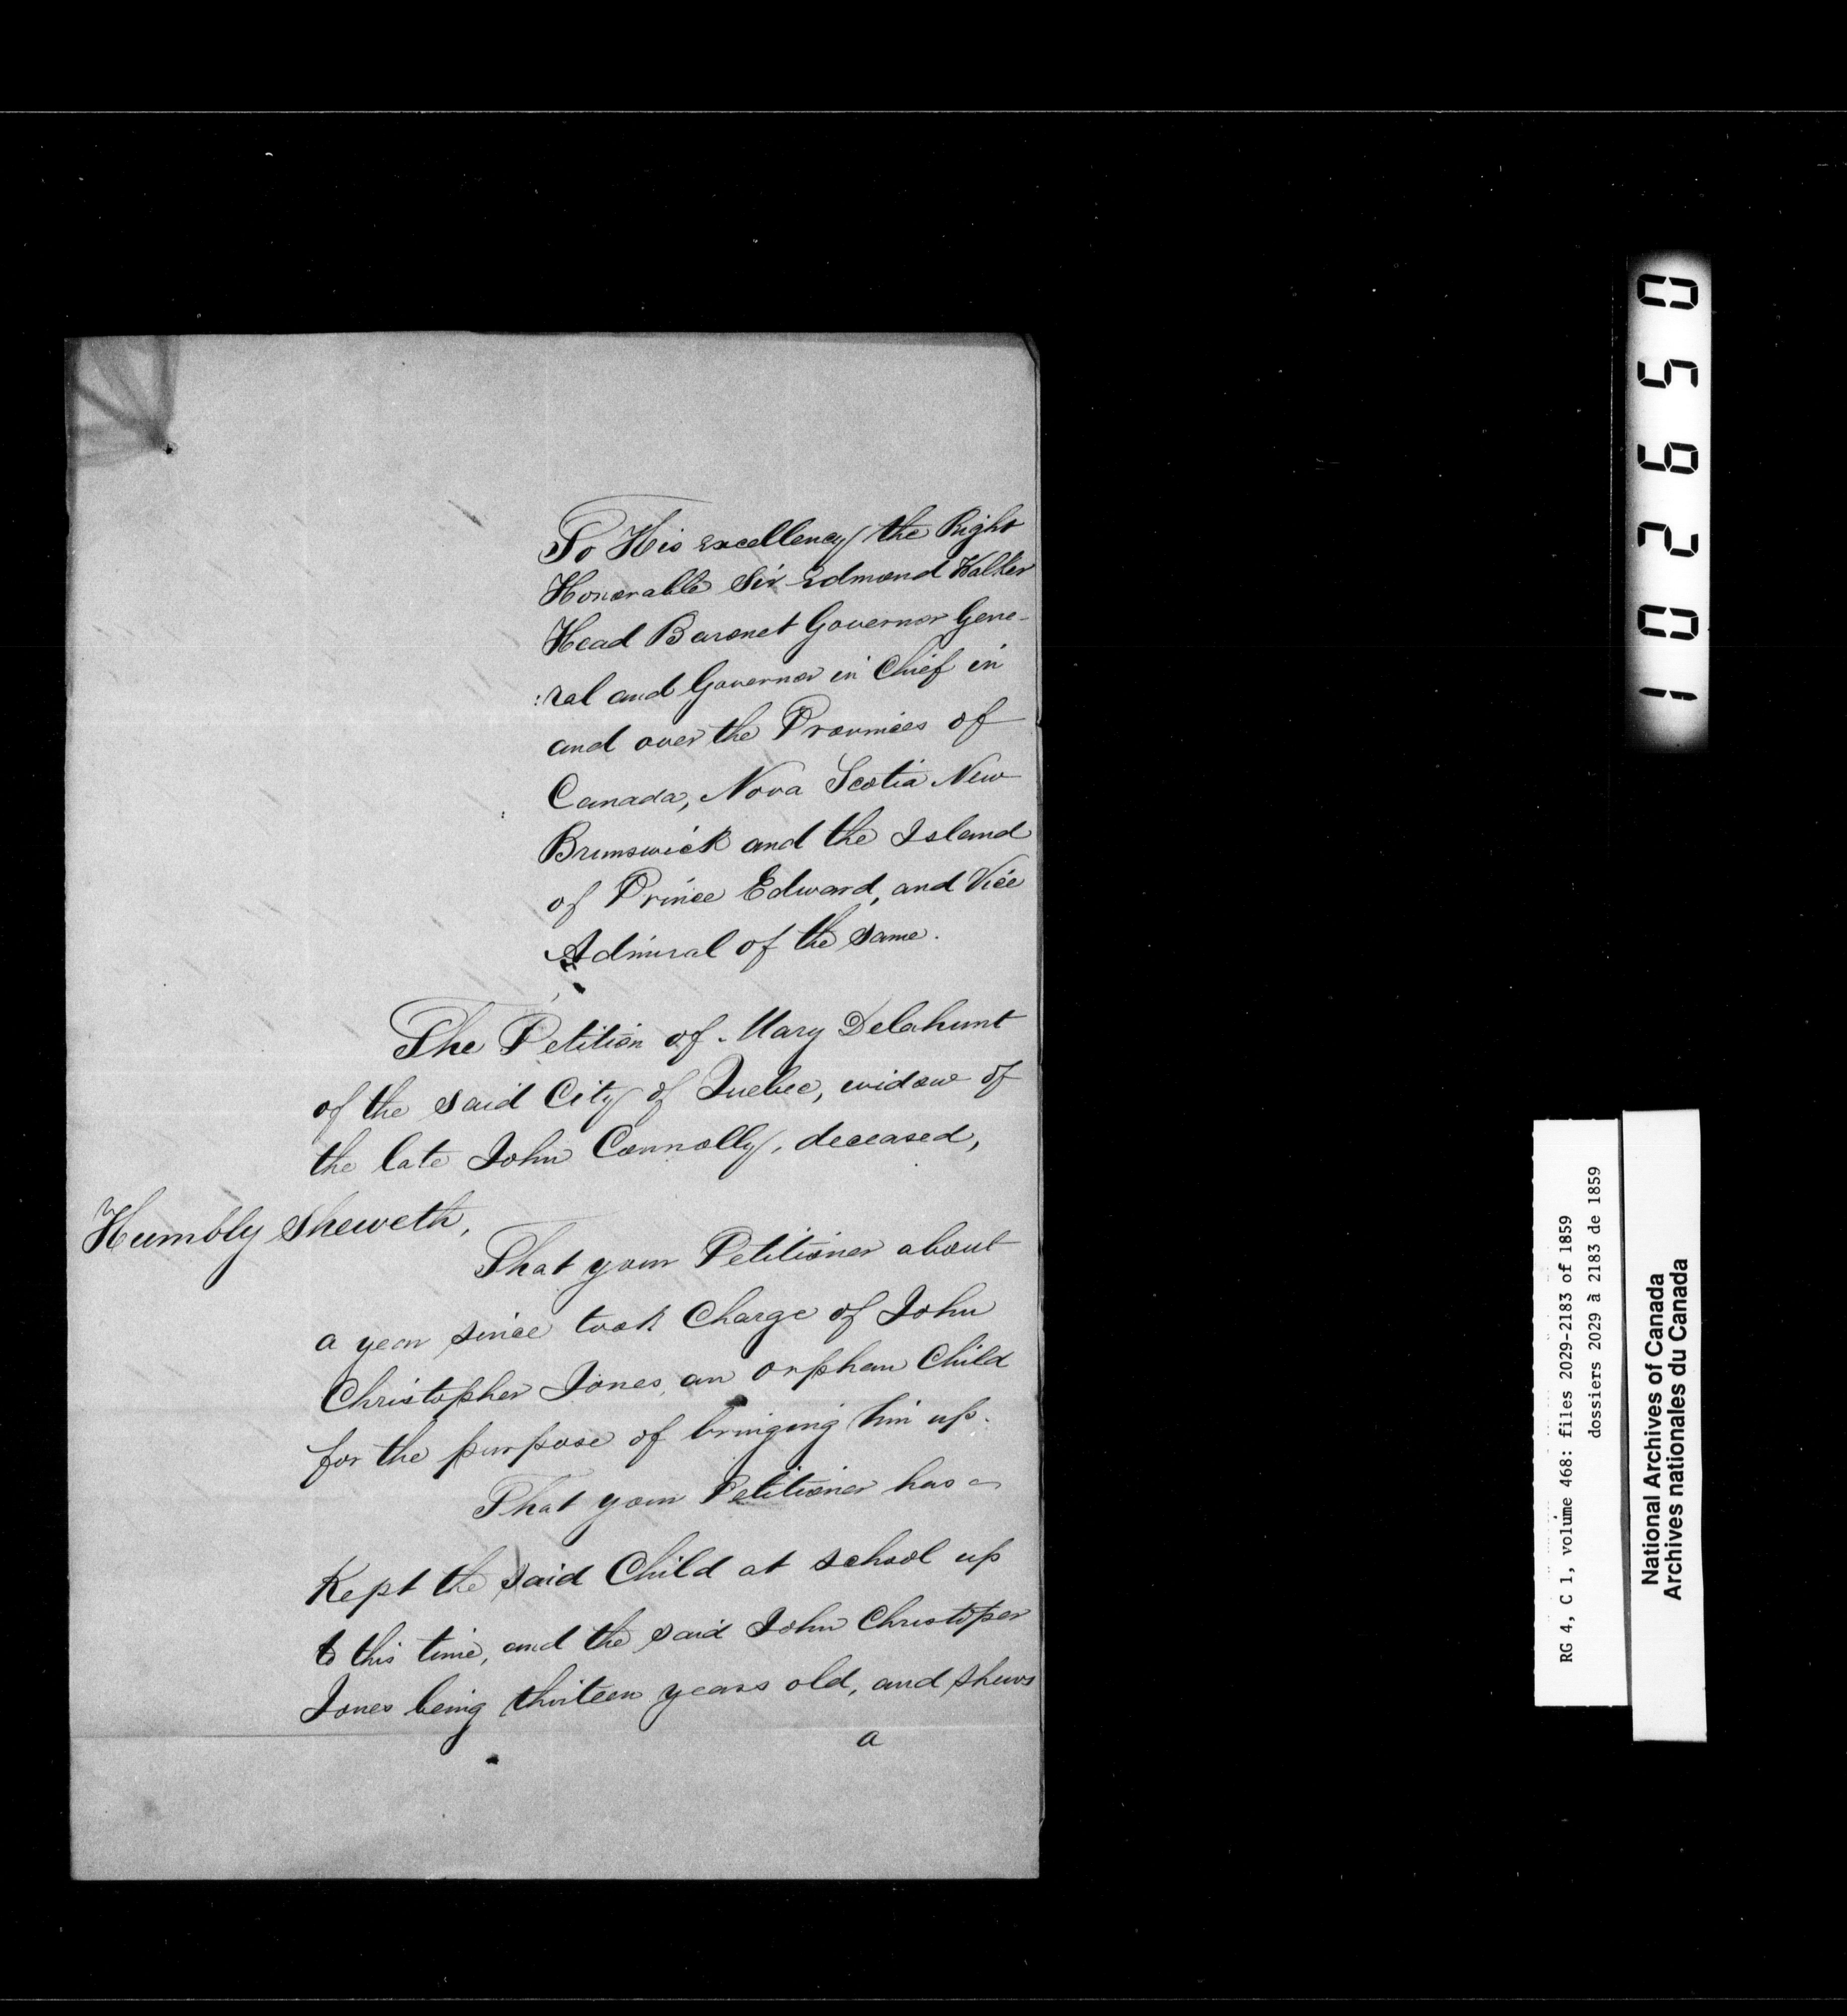 To His Excellency the Right
Honorable Sir Edmond Walker
Head Baronet Governor Gene-
:ral and Governor in Chief in
and over the Provinces of
Canada, Nova Scotia New
Brunswick and the Island
of Prince Edward, and Vice
Admiral of the same.
The Petition of Mary Delahunt
of the said City of Quebec, widow of
the late John Connolly, deceased,
Humbly Sheweth,
That your Petitioner about
a year since took Charge of John
Christopher Jones, an orphan Child
for the purpose of bringing him up.
That your Petitioner has
Kept the said Child at school up
to this time, and the said John Christoper
Jones being thirteen years old, and shews
a
102650
RG 4, C 1, volume 468: files 2029-2183 of 1859
dossiers 2029 à 2183 de 1859
National Archives of Canada
Archives nationales du Canada